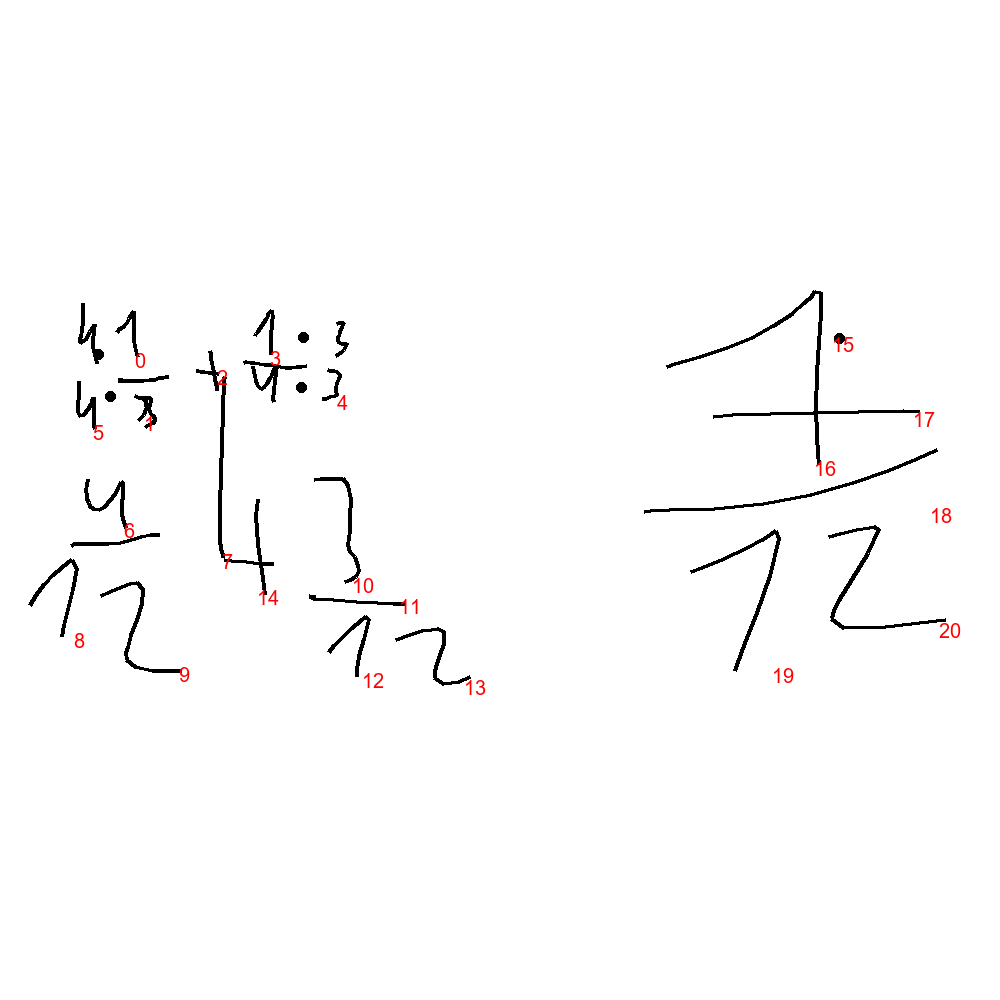 4·1/4·3 + 1·3/4·3
4/12 + 3/12
7/12
0 1 2 3 4 5 6 7 8 9 10 11 12 13 14 15 16 17 18 19 20